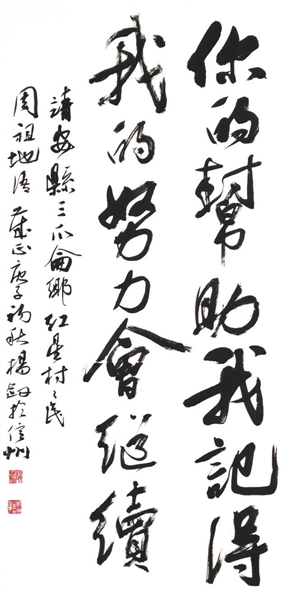 你的幫助我記得
我的努力會繼續
靖安縣三爪侖鄉紅星村村民
周祖地語 歲正庚子初秋楊劍於信州